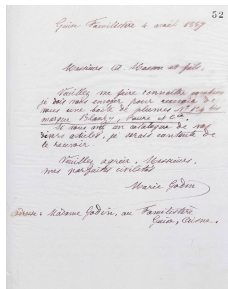 52
Guise Familistère 4 août 1887
Messieurs A. Mason et fils,
Veuillez me faire connaître combien
je dois vous envoyer pour recevoir de
vous une boîte de plumes
marque Blanzy, Poure et Cie
Si vous avez un catalogue de vos
divers articles, je serais contente de
le recevoir
Veuillez agréer, Messieurs,
mes parfaites civilités
Marie Godin
Adresse: Madame Godin, au Familistère
Guise, Aisne.